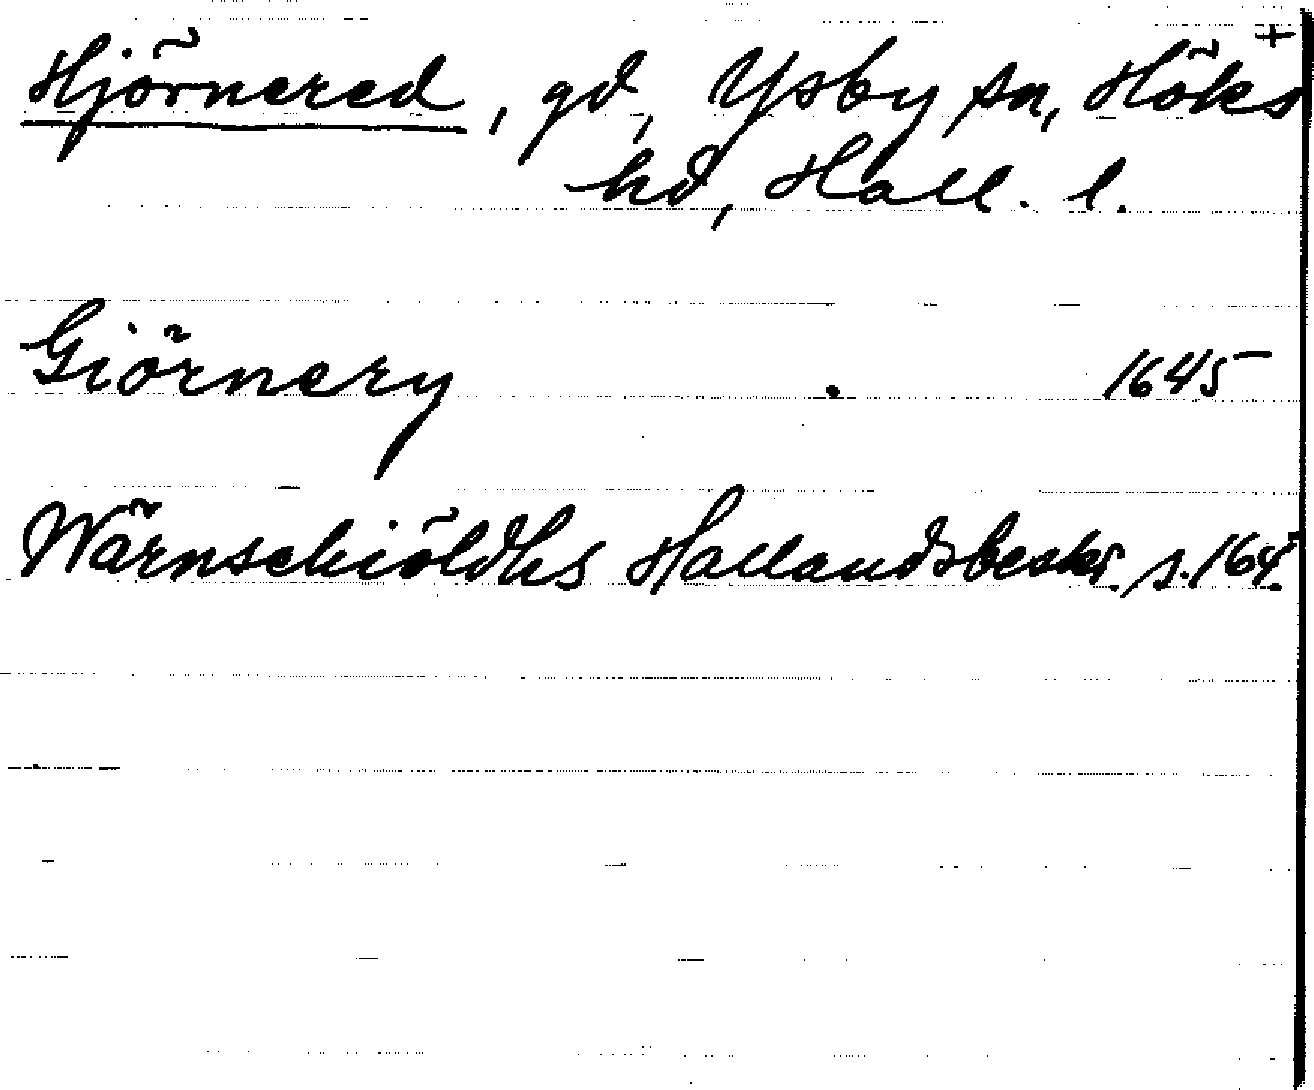 +
Hjörnered, gd, Ysby sn, Höks
hd, Hall. l.
Giörnery 1645
Wärnschiöldhs Hallandsbeskr. s. 164.